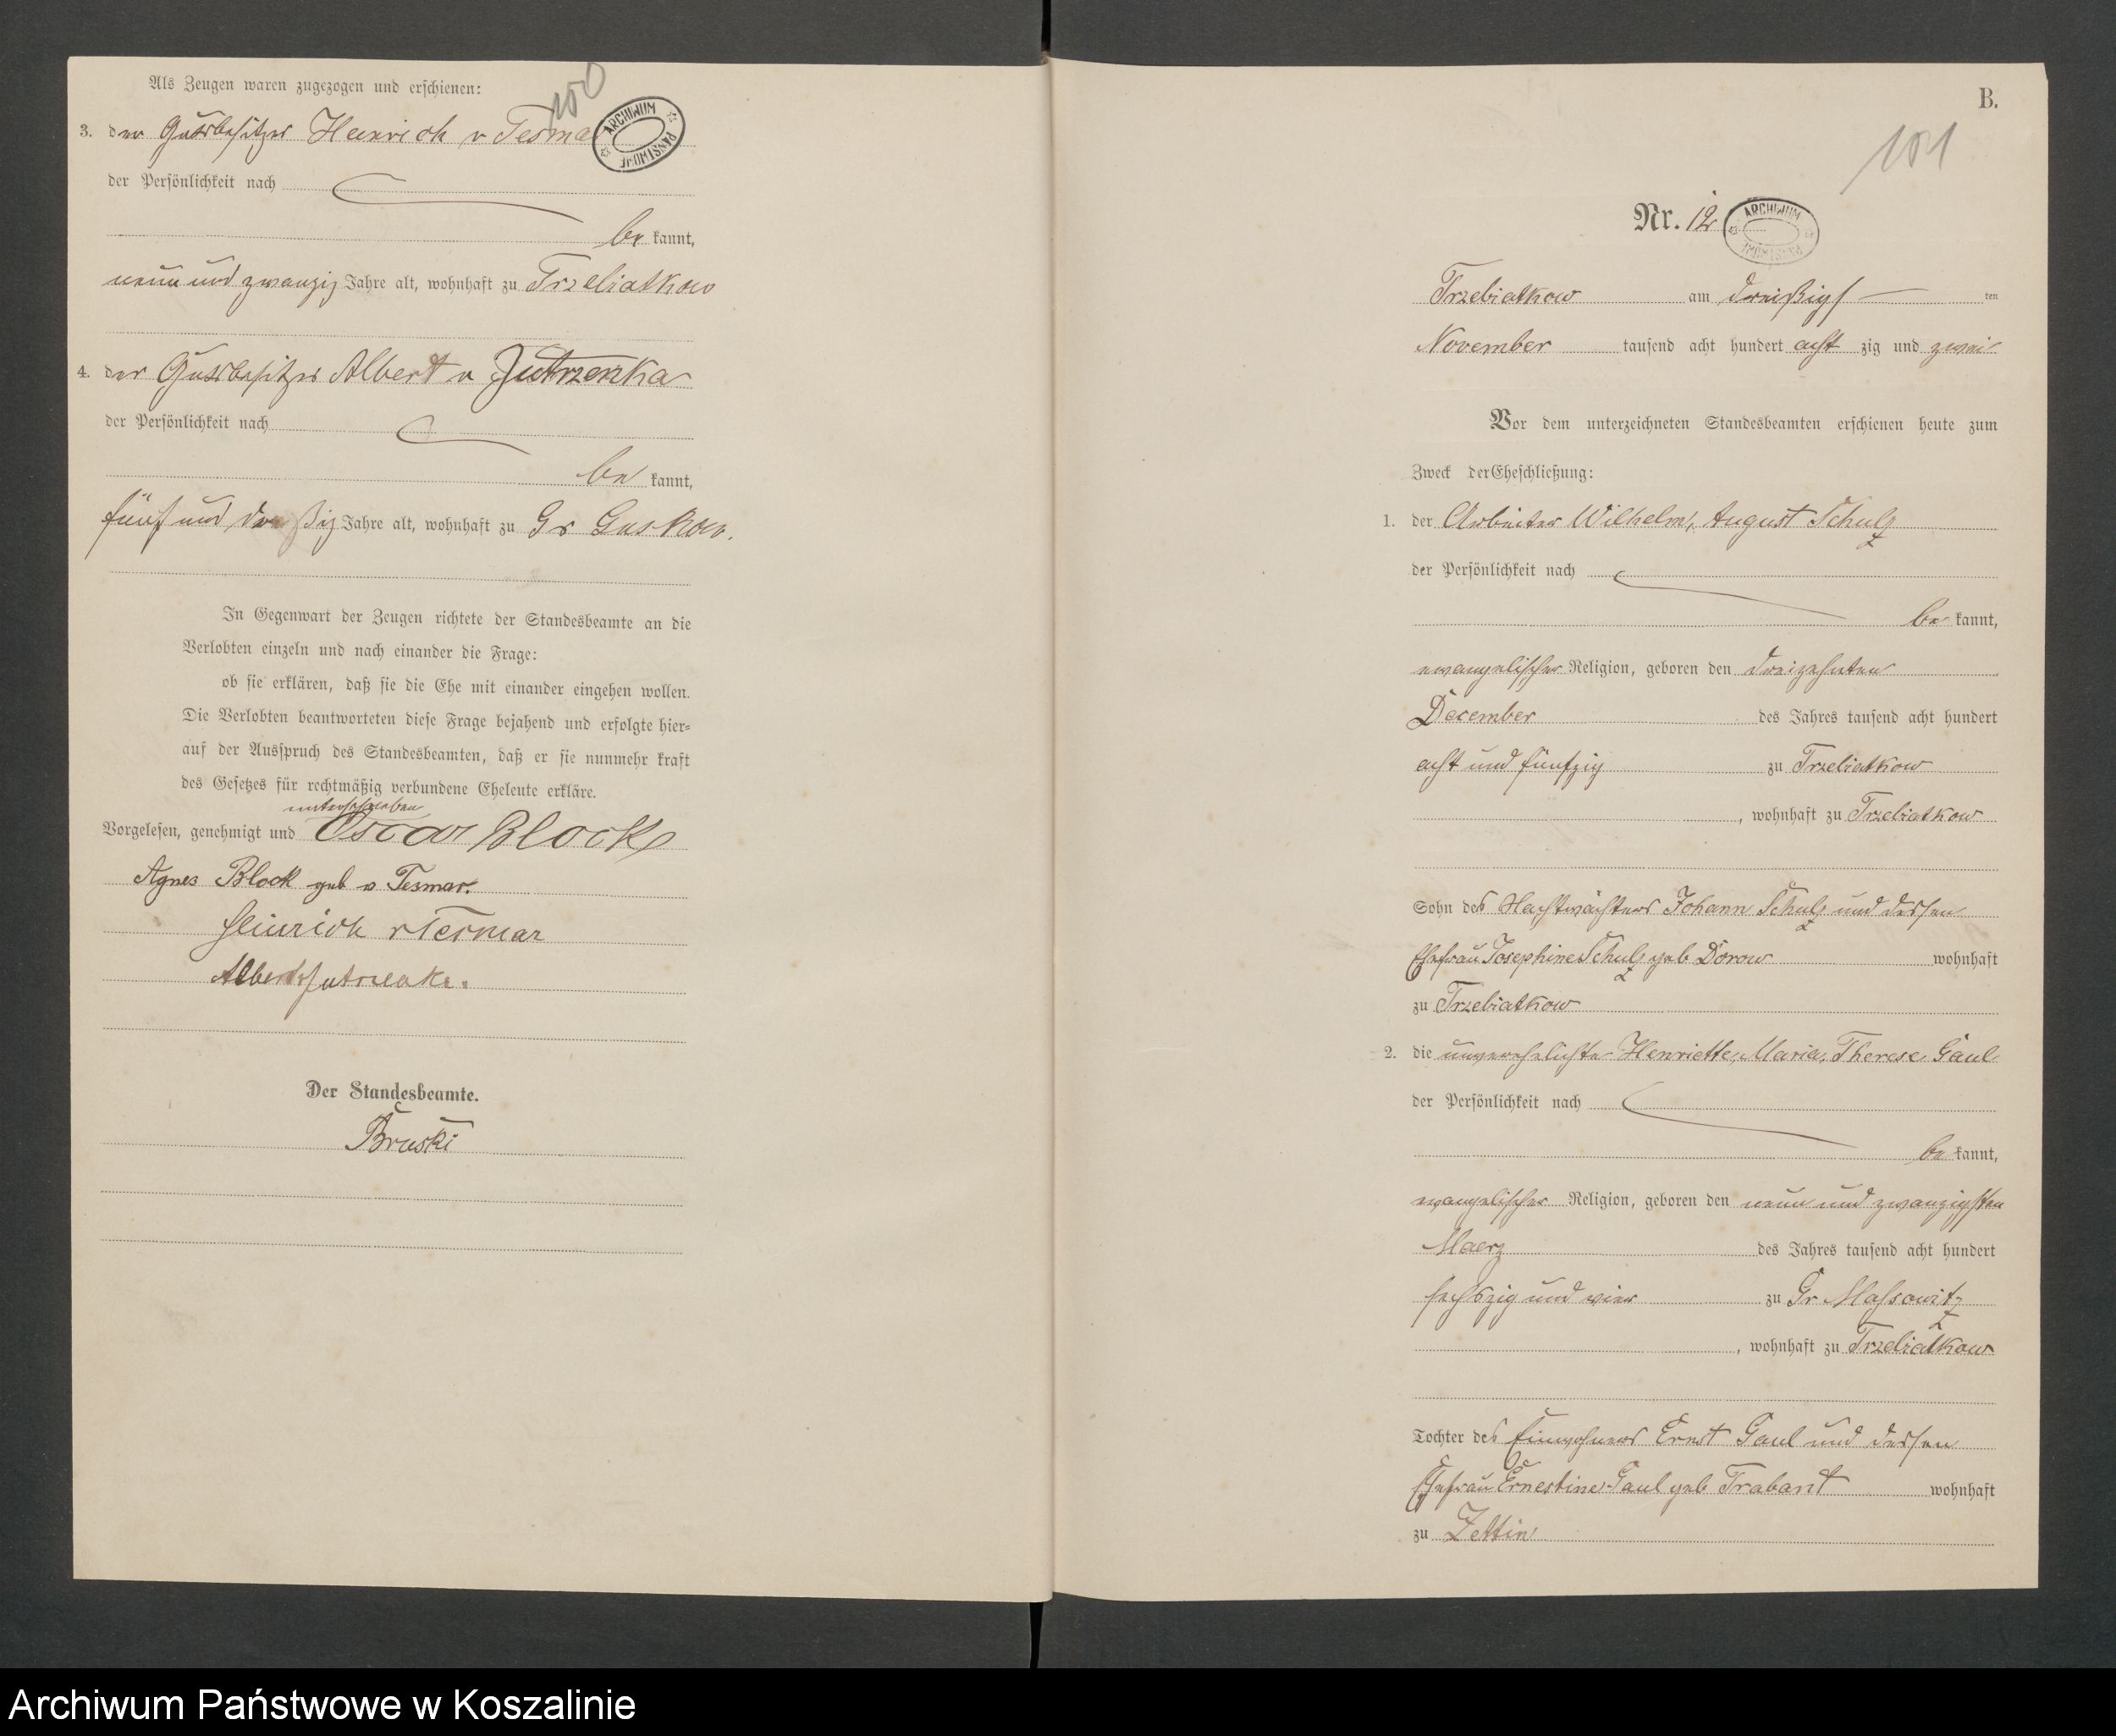 Als Zeugen waren zugezogen und erschienen:
100
ARCHIWUM PAŃSTWOWE
3. der Gutsbesitzer Heinrich v Tesmar
der Persönlichkeit nach
be kannt,
neun und zwanzig Jahre alt, wohnhaft zu Trzebiatkow
4. der Gutsbesitzer Albert v Jutrzenka
der Persönlichkeit nach
be kannt,
fünf und dreißig Jahre alt, wohnhaft zu Gr Guskow.
In Gegenwart der Zeugen richtete der Standesbeamte an die
Verlobten einzeln und nach einander die Frage:
ob sie erklären, daß sie die Ehe mit einander eingehen wollen.
Die Verlobten beantworteten diese Frage bejahend und erfolgte hier-
auf der Ausspruch des Standesbeamten, daß er sie nunmehr kraft
des Gesetzes für rechtmäßig verbundene Eheleute erkläre.
unterschrieben
Vorgelesen, genehmigt und Oscar Block
Agnes Block geb v Tesmar.
Heinrich v Tesmar
Albert Jutrzenka.
Der Standesbeamte.
Bruski
B.
101
Nr. 12
ARCHIWUM PAŃSTWOWE
Trzebiatkow am dreißigs ten
November tausend acht hundert acht zig und zwei
Vor dem unterzeichneten Standesbeamten erschienen heute zum
Zweck der Eheschließung:
1. der Arbeiter Wilhelm, August Schulz
der Persönlichkeit nach
be kannt,
evangelischer Religion, geboren den dreizehnten
December des Jahres tausend acht hundert
acht und fünfzig zu Trzebiatkow
, wohnhaft zu Trzebiatkow
Sohn des Nachtwächters Johann Schulz und dessen
Ehefrau Josephine Schulz geb Dorow wohnhaft
zu Trzebiatkow
2. die unverehelichte Henriette, Maria, Therese Gaul
der Persönlichkeit nach
be kannt,
evangelischer Religion, geboren den neun und zwanzigsten
Maerz des Jahres tausend acht hundert
sechszig und vier zu Gr Massowitz
, wohnhaft zu Trzebiatkow
Tochter des Einwohners Ernst Gaul und dessen
Ehefrau Ernestine Gaul geb Trabant wohnhaft
zu Zettin
Archiwum Państwowe w Koszalinie